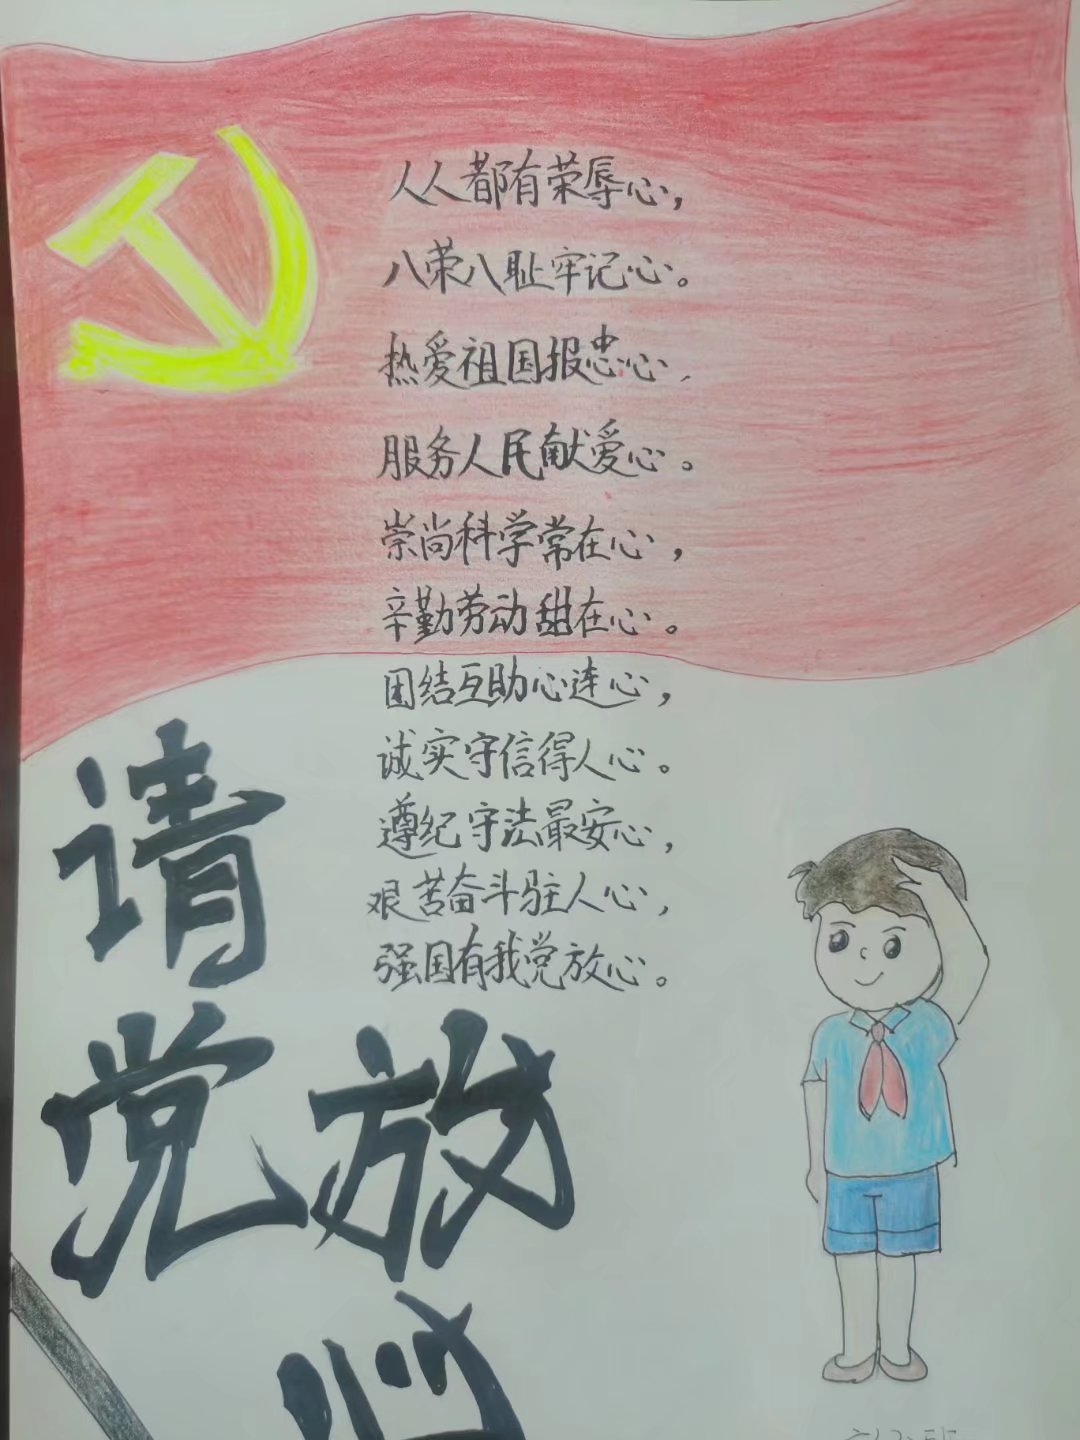 人人都有荣辱心，
八荣八耻牢记心。
热爱祖国报忠心，
服务人民献爱心。
崇尚科学常在心，
辛勤劳动甜在心。
团结互助心连心，
诚实守信得人心。
遵纪守法最安心，
艰苦奋斗驻人心，
强国有我党放心。
请
党放
心